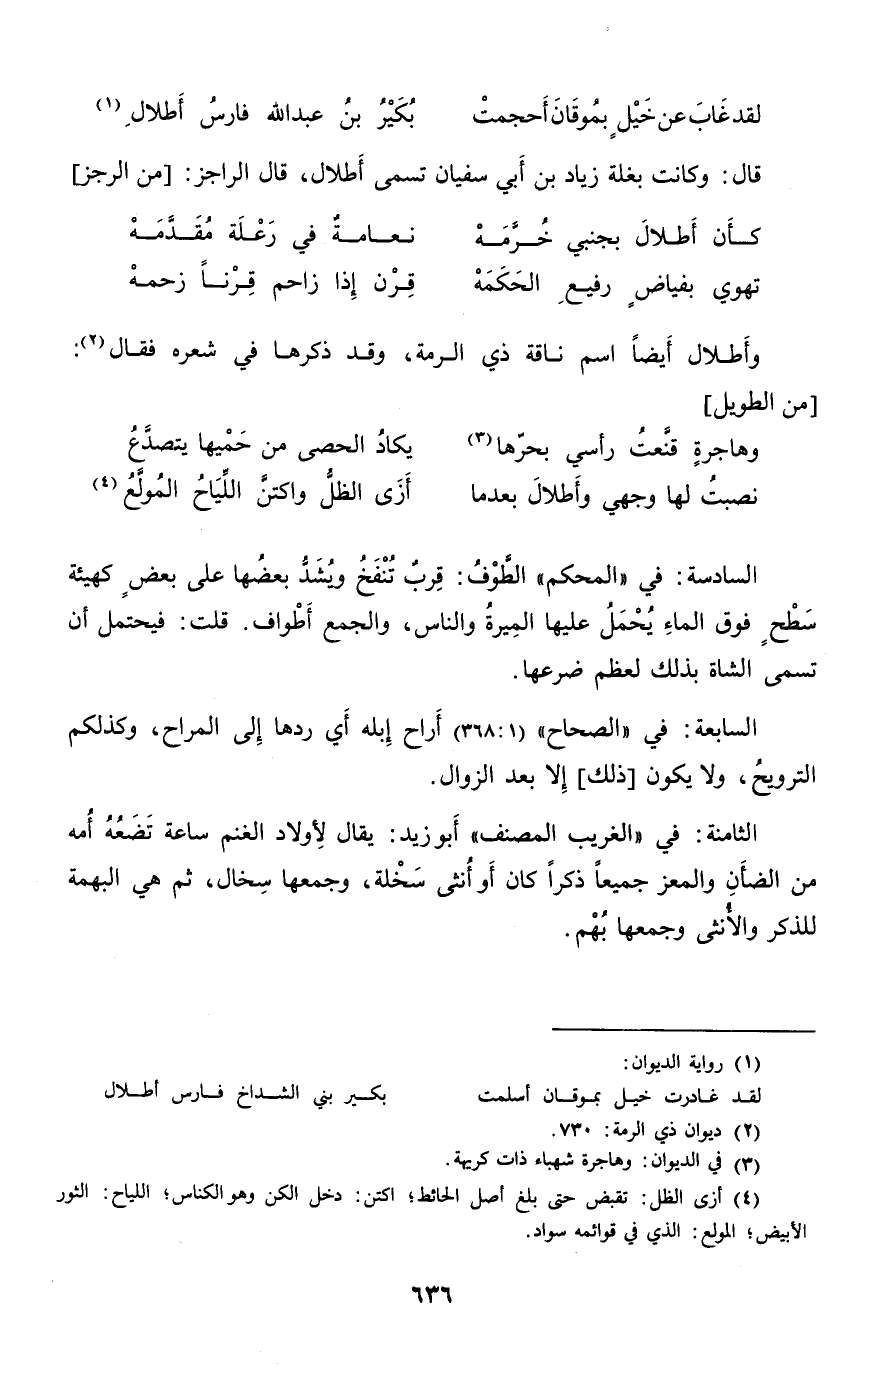 لقد غَابَ عن خَيْلٍ بمُوقَانَ أَحجمتْ بُكَيْرُ بنُ عبدالله فارسُ أَطلالِ (١)
قال: وكانت بغلة زياد بن أَبي سفيان تسمى أَطلال، قال الراجز: [من الرجز]
كــأَن أَطـلالَ بجنبي خُــرَّمَــهْ نـعــامــةٌ في رَعْـلَة مُقَــدَّمَــهْ
تهوي بفياضٍ رفيعِ الحَكَمَهْ قِرْن إِذا زاحم قِـرْنــاً زحمـهْ
وأَطـلال أَيضاً اسم نـاقة ذي الـرمة، وقـد ذكرهـا في شعره فقـال(٢):
[من الطويل]
وهاجرةٍ قنَّعتُ رأسي بحرّها(٣) يكادُ الحصى من حَمْيها يتصدَّعُ
نصبتُ لها وجهي وأَطلالَ بعدما أَزَى الظلُّ واكتنَّ اللِّيَاحُ المُولَّعُ (٤)
السادسة: في «المحكم» الطَّوْفُ: قِربٌ تُنْفَخُ ويُشَدُّ بعضُها على بعضٍ كهيئة
سَطْحٍ فوق الماءِ يُحْمَلُ عليها المِيرةُ والناس، والجمع أَطْواف. قلت: فيحتمل أن
تسمى الشاة بذلك لعظم ضرعها.
السابعة: في «الصحاح» (١:٣٦٨) أَراح إِبله أَي ردها إِلى المراح، وكذلكم
الترويحُ، ولا يكون [ذلك] إِلا بعد الزوال.
الثامنة: في «الغريب المصنف» أَبو زيد: يقال لِأَولاد الغنم ساعة تَضَعُهُ أُمه
من الضأَنِ والمعز جميعاً ذكراً كان أَو أُنثى سَخْلة، وجمعها سِخال، ثم هي البهمة
للذكر والأُنثى وجمعها بُهْم.
(١) رواية الديوان:
لقـد غـادرت خيـل بمـوقـان أسلمت بكـير بني الشـداخ فـارس أطـلال
(٢) ديوان ذي الرمة: ٧٣٠.
(٣) في الديوان: وهاجرة شهباء ذات كريهة.
(٤) أزى الظل: تقبض حتى بلغ أصل الحائط؛ اكتن: دخل الكن وهو الكناس؛ اللياح: الثور
الأبيض؛ المولع: الذي في قوائمه سواد.
٦٣٦